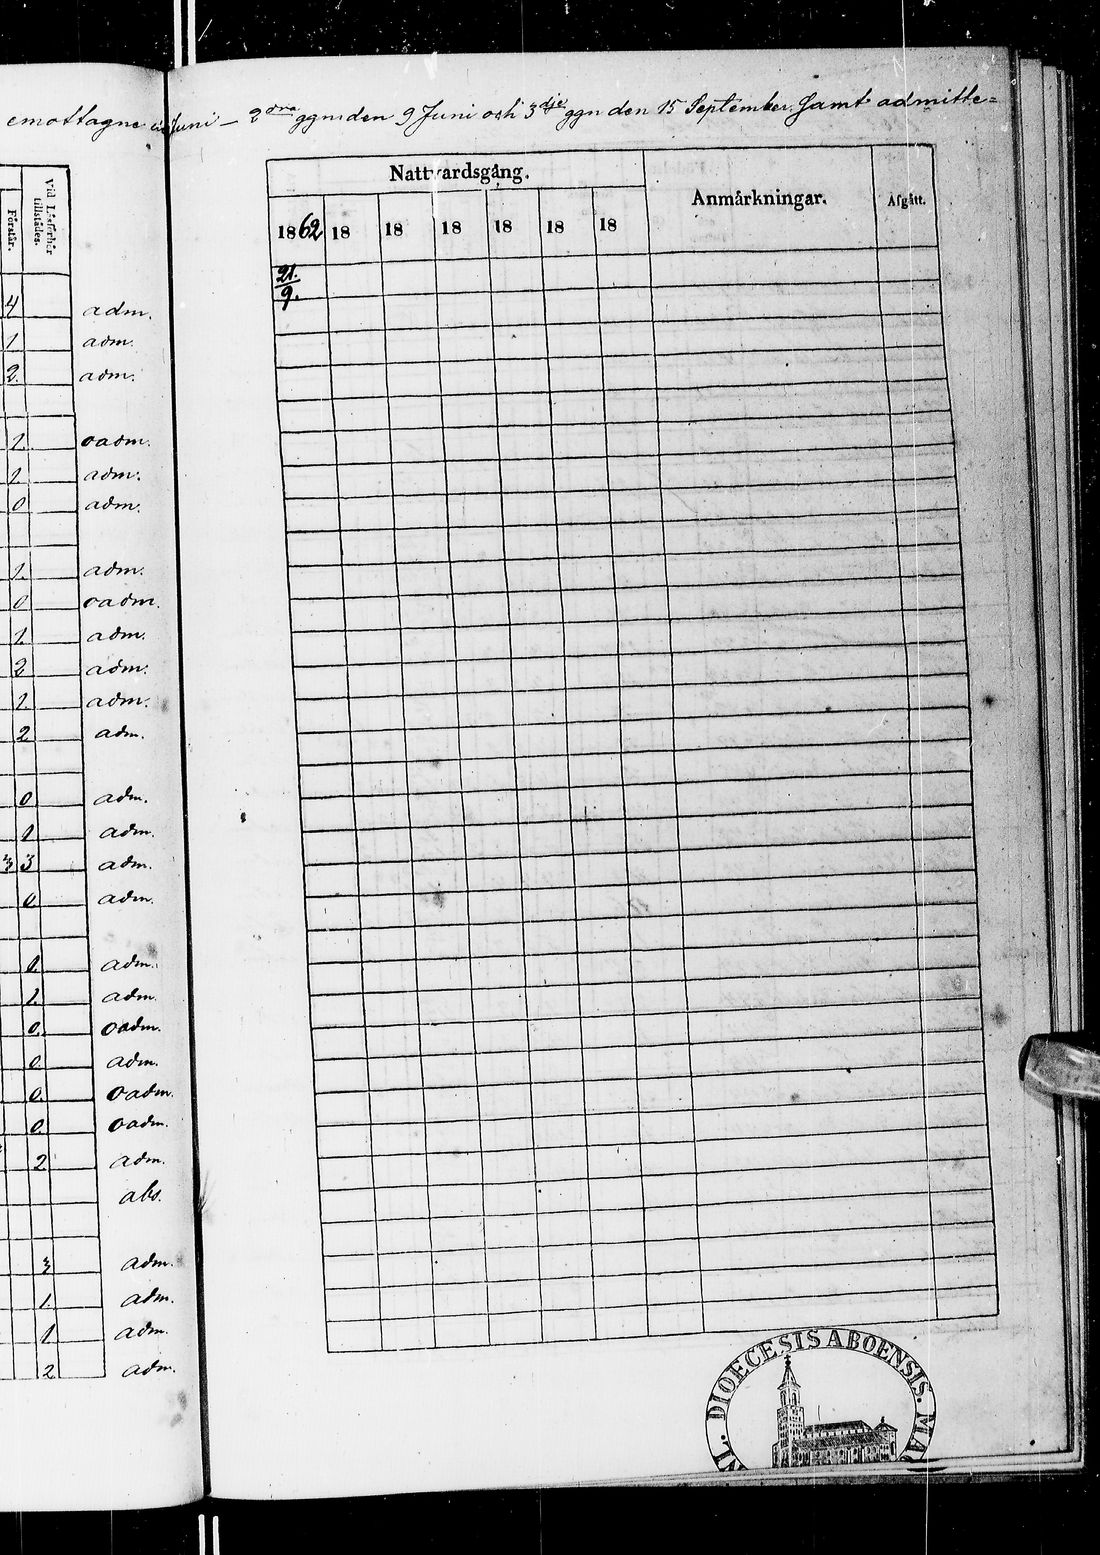 emottagne
Juni – 2dra ggn den 9 Juni och 3dje ggn den 15 September, samt admitte=
Förstår.
Vid Läsförhör tillstädes.
4 adm.
1 adm.
2 adm.
1 oadm.
1 adm.
0 adm.
1. adm.
0 oadm.
1 adm.
2 adm.
1 adm.
2 adm.
0 adm.
1 adm.
3 3 adm.
0. adm.
1. adm.
1. adm.
0. oadm.
0. adm.
0. oadm.
0. oadm.
2 adm.
abs.
3 adm.
1. adm.
1 adm.
2 adm.
Nattvardsgång.
Anmärkningar.
Afgått.
1862 18 18 18 18 18 18
21.
9.
DIOECESIS ABOENSIS. MA